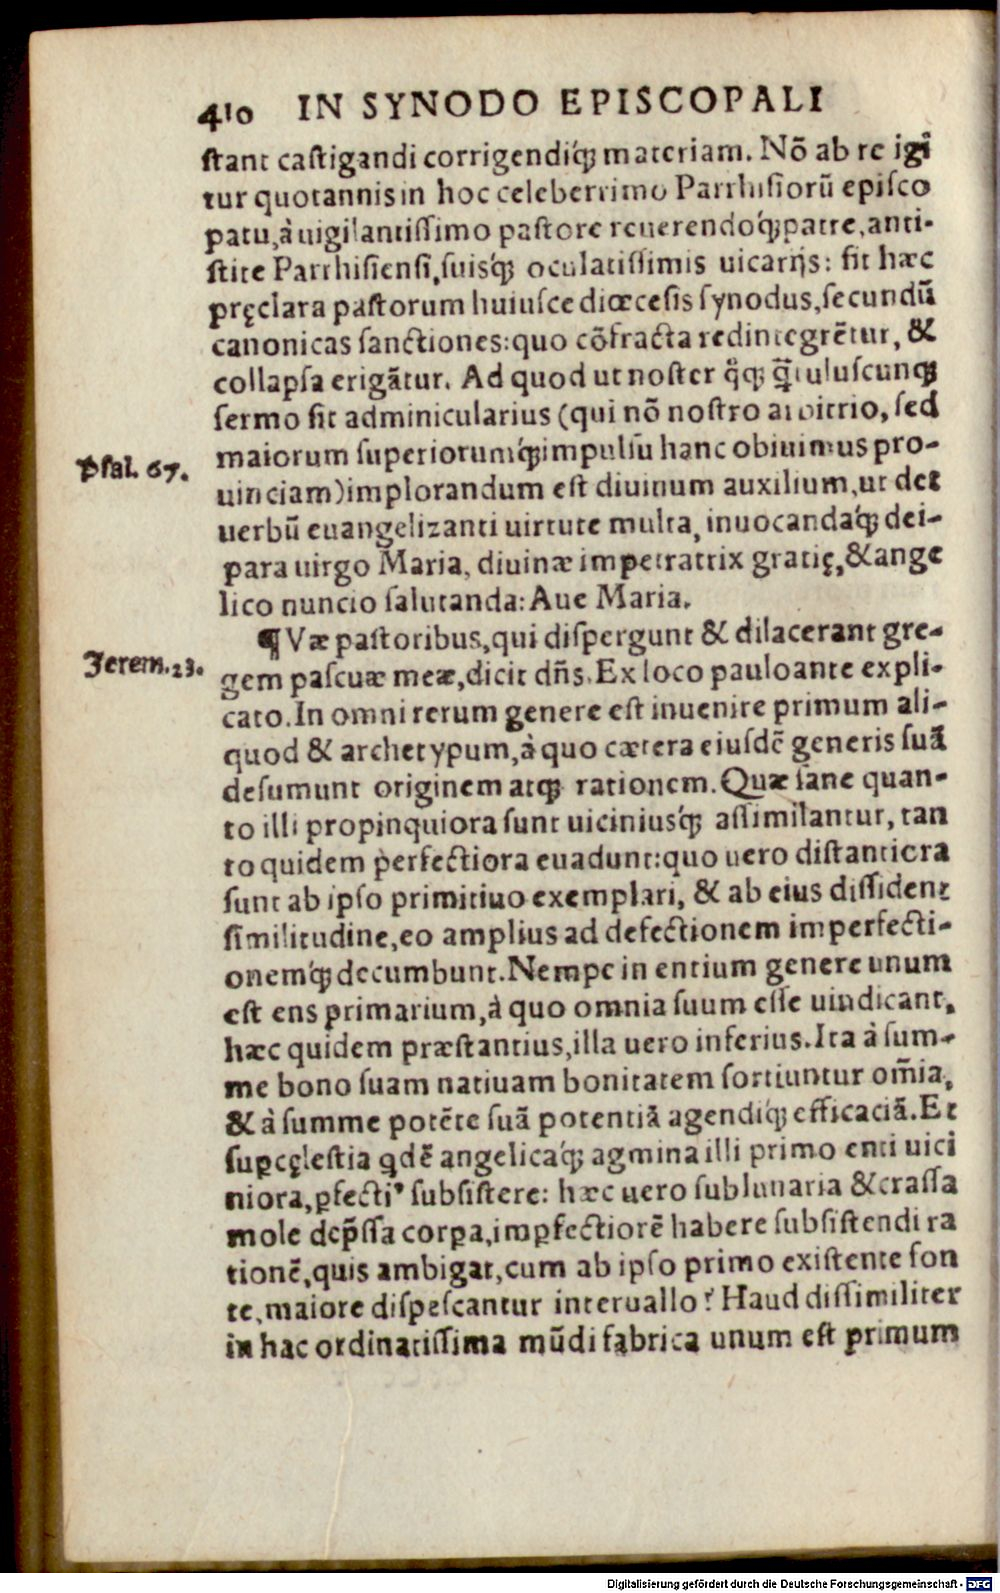 410 IN SYNODO EPISCOPALI
ſtant caſtigandi corrigendiq́ꝫ materiam. Nõ ab re igĩ
tur quotannis in hoc celeberrimo Parrhiſiorũ epiſco
patu, à uigilantiſſimo paſtore reuerendoq́ꝫ patre, anti-
ſtite Parrhiſienſi, ſuisq́ꝫ oculatiſſimis uicarijs: fit hæc
pręclara paſtorum huiuſce diœceſis ſynodus, ſecundũ
canonicas ſanctiones: quo cõfracta redintegrẽtur, &
collapſa erigãtur. Ad quod ut noſter
ſermo ſit adminicularius (qui nõ noſtro arbitrio, ſed
maiorum ſuperiorumq́ꝫ impulſu hanc obiuimus pro-
Pſal. 67.
uinciam) implorandum eſt diuinum auxilium, ut det
uerbũ euangelizanti uirtute multa, inuocandaq́ꝫ dei-
para uirgo Maria, diuinæ impetratrix gratię, & ange
lico nuncio ſalutanda: Aue Maria.
¶ Væ paſtoribus, qui diſpergunt & dilacerant gre-
Jerem. 23.
gem paſcuæ meæ, dicit dñs. Ex loco pauloante expli-
cato. In omni rerum genere eſt inuenire primum ali-
quod & archetypum, à quo cætera eiuſdẽ generis ſuã
deſumunt originem atqꝫ rationem. Quæ ſane quan-
to illi propinquiora ſunt uiciniusq́ꝫ aſſimilantur, tan
to quidem perfectiora euadunt: quo uero diſtantiora
ſunt ab ipſo primitiuo exemplari, & ab eius diſſident
ſimilitudine, eo amplius ad defectionem imperfecti-
onemq́ꝫ decumbunt. Nempe in entium genere unum
eſt ens primarium, à quo omnia ſuum eſſe uindicant,
hæc quidem præſtantius, illa uero inferius. Ita à ſum-
me bono ſuam natiuam bonitatem ſortiuntur om̃ia,
& à ſumme potẽte ſuã potentiã agendiq́ꝫ efficaciã. Et
ſuꝑcęleſtia qdẽ angelicaq́ꝫ agmina illi primo enti uici
niora, ꝑfectiꝰ ſubſiſtere: hæc uero ſublunaria & craſſa
mole dep̃ſſa corꝑa, imꝑfectiorẽ habere ſubſiſtendi ra
tionẽ, quis ambigat, cum ab ipſo primo exiſtente fon
te, maiore diſpeſcantur interuallo? Haud diſſimiliter
in hac ordinatiſſima mũdi fabrica unum eſt primum
Digitalisierung gefördert durch die Deutsche Forschungsgemeinschaft - DFG